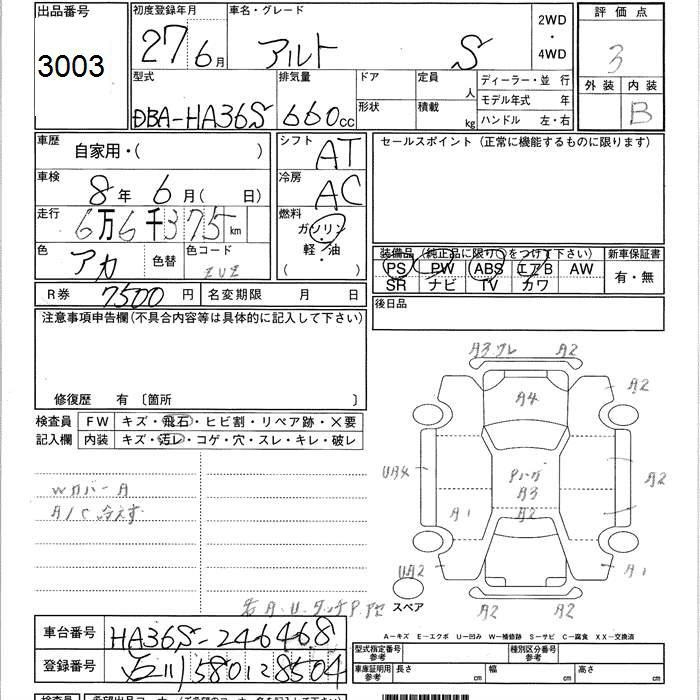 出品番号
3003
初度登録年月
27年6月
車名・グレード
アルト S
2WD
・
4WD
評価点
3
外装 内装
B
型式
DBA-HA36S
排気量
660cc
ドア
形状
定員 人
積載 kg
ディーラー・並 行
モデル年式 年
ハンドル 左・右
車歴
自家用・( )
車検
8年 6月( 日)
走行
6万6千375km
色
アカ
色替
色コード
ZUZ
シフト
AT
冷房
AC
燃料
ガソリン
軽・油
( )
セールスポイント (正常に機能するものに限ります)
装備品 (純正品に限り○をつけ下さい)
PS PW ABS エアB AW
SR ナビ TV カワ
新車保証書
有・無
後日品
R券 7500円
名変期限 月 日
注意事項申告欄(不具合内容等は具体的に記入して下さい)
修復歴 有 〔箇所 〕
検査員
記入欄
FW キズ・飛石・ヒビ割・リペア跡・×要
内装 キズ・汚レ・コゲ・穴・スレ・キレ・破レ
Wカバー A
A/C 冷えず
A3 ワレ A2
A2
A4
UA4
A3
A2
A2
A1
UA2
A1
スペア
A2 A2
車台番号
HA36S-246468
登録番号
石川 580 に 8504
A－キズ E－エクボ U－凹み W－補修跡 S－サビ C－腐食 XX－交換済
型式指定番号
参考
種別区分番号
参考
車庫証明用
参考
長さ cm 幅 cm 高さ cm